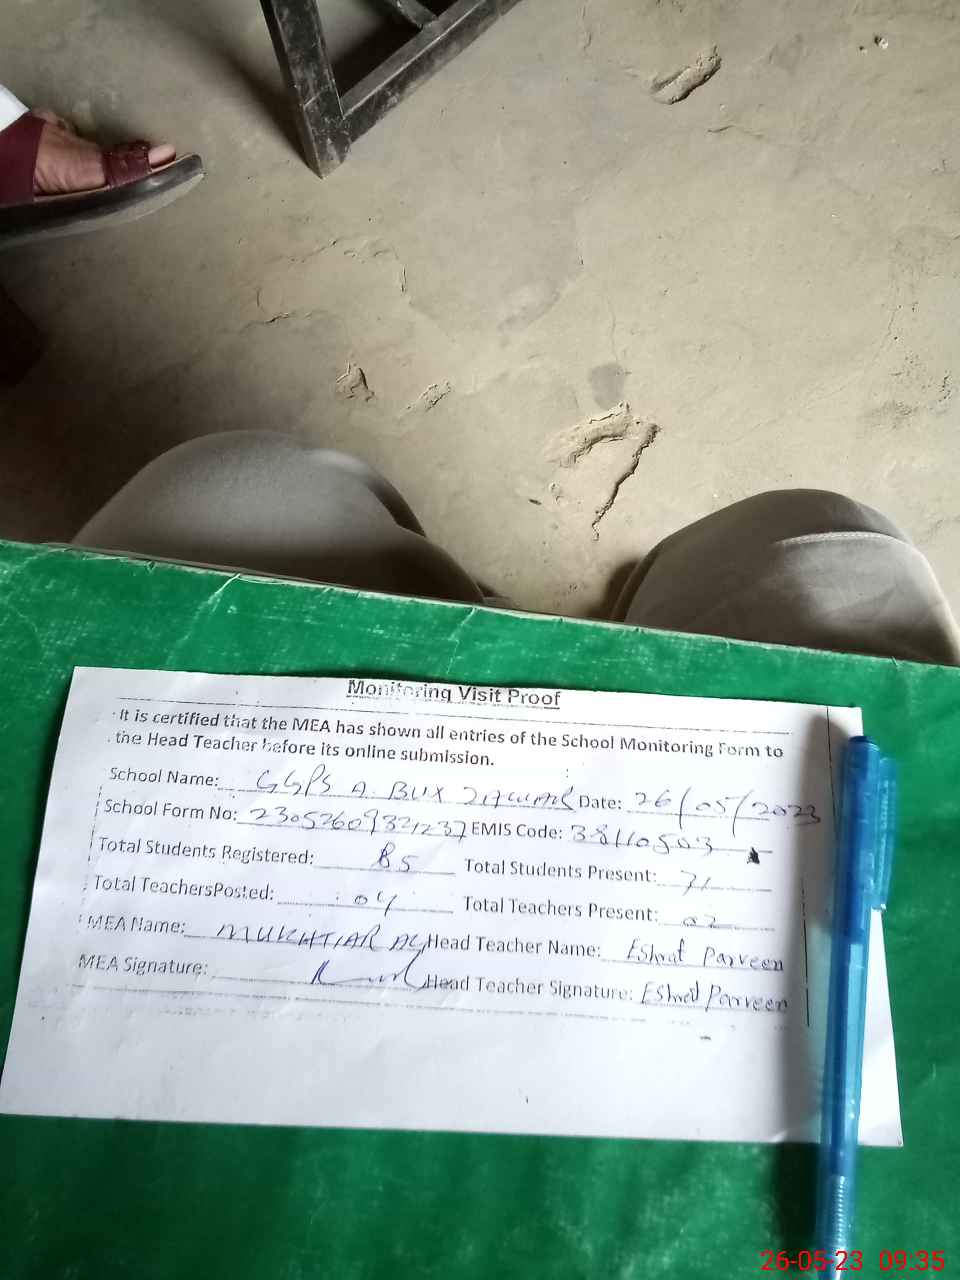 Monitoring Visit Proof
It is certified that the MEA has shown all entries of the School Monitoring Form to
the Head Teacher before its online submission.
School Name: GGPS A. BUX Date: 26/05/2023
School Form No: 23052609321237 EMIS Code: 38110503
Total Students Registered: 85 Total Students Present: 71
Total TeachersPosted: 04 Total Teachers Present: 02
MEA Name: MUKHTIAR ALI Head Teacher Name: Eshrat Parveen
MEA Signature: Head Teacher Signature: Eshrat Parveen
26-05-23 09:35